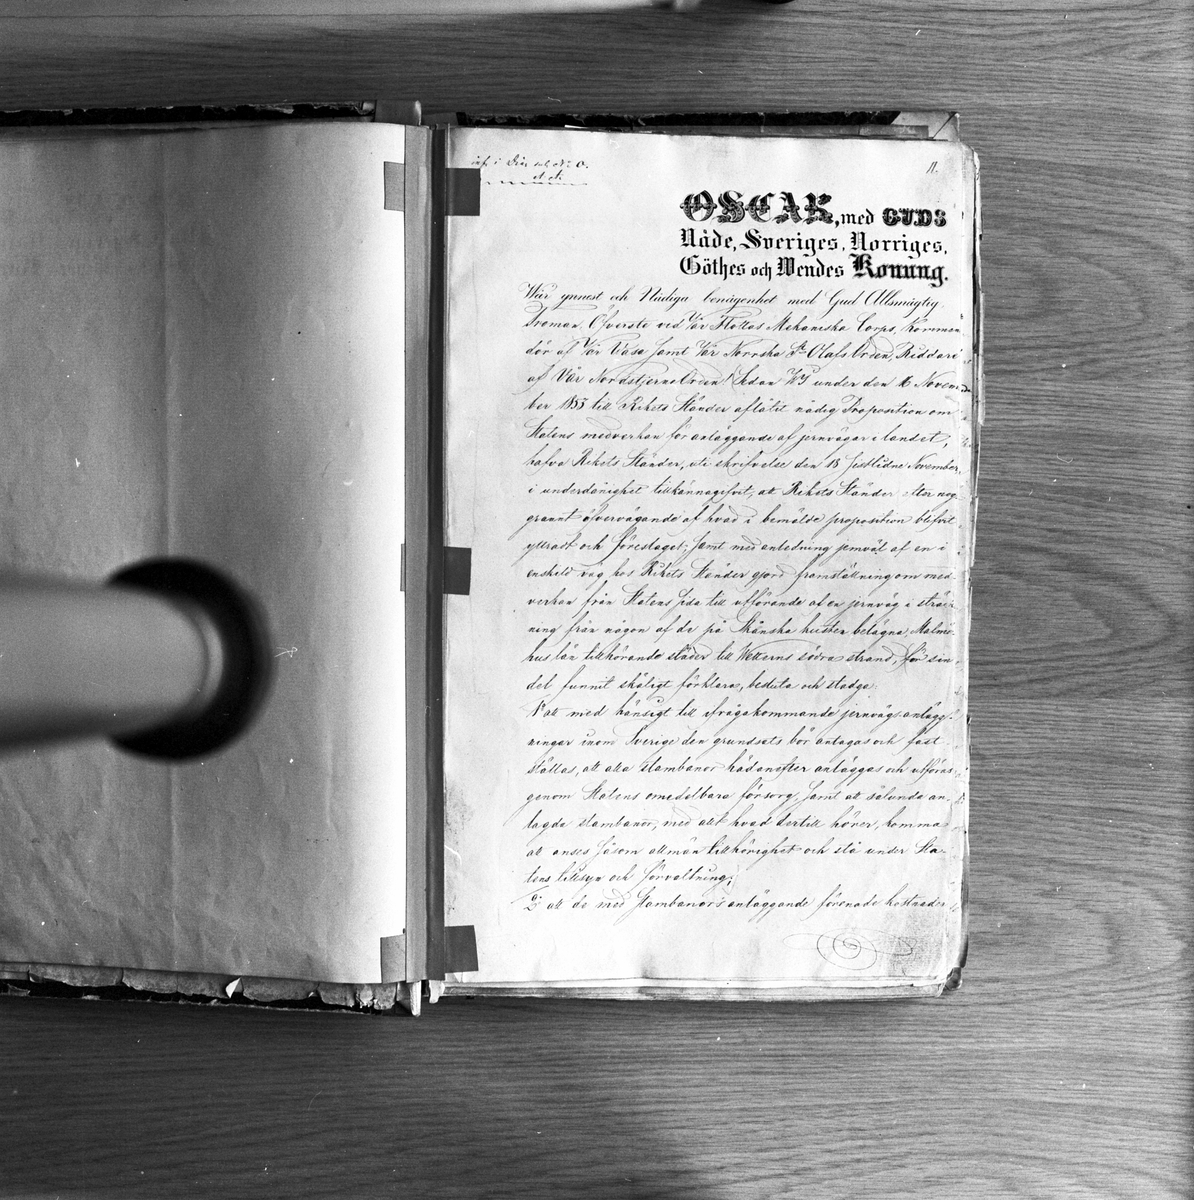 11.
OSCAR, med GUDS
Nåde, Sveriges, Norriges,
Göthes och Wendes Konung.
Wår ynnest och Nådiga benägenhet med Gud Allsmägtig.
Troman, Öfverste vid Vår Flottas Mekaniska Corps, Kommen
dör af Vår Vasa samt Vår Norrska St Olafs Orden, Riddare
af Vår Nordstjerne Orden! Sedan Wi under den 16 Novem
ber 1853 till Rikets Ständer aflåtit nådig Proposition om
Statens medverkan för anläggande af jernvägar i landet,
hafva Rikets Ständer, uti skrifvelse den 18 sistlidne November,
i underdånighet tillkännagifvit, att Rikets Ständer efter nog-
grannt öfvervägande af hvad i bemälde proposition blifvit
yttradt och föreslaget, samt med anledning jemväl af en i
enskild väg hos Rikets Ständer gjord framställning om med-
verkan från Statens sida till utförande af en jernväg i sträck
ning från någon af de på Skånska kusten belägna, Malmö-
hus län tillhörande städer till Wetterns södra strand, för sin
del funnit skäligt förklara, besluta och stadga:
1o att med hänsigt till ifrågakommande jernvägsanlägg-
ningar inom Sverige den grundsats bör antagas och fast-
ställas, att alla stambanor hädanefter anläggas och utföras
genom Statens omedelbara försorg, samt att sålunda an-
lagda stambanor, med allt hvad dertill hörer, komma
att anses såsom allmän tillhörighet och stå under Sta-
tens tillsyn och förvaltning;
2o att de med stambanors anläggande förenade kostnader